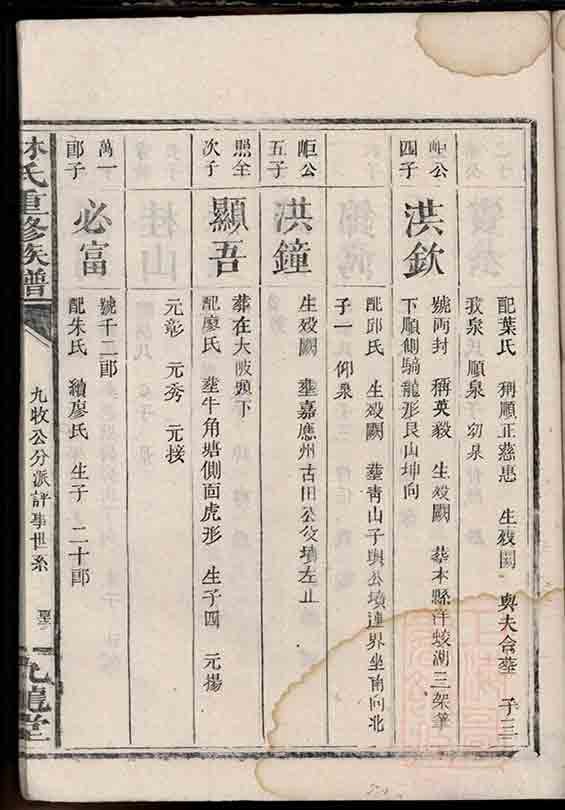 配葉氏 稱順正慈惠 生歿闕 與夫合塟 子三
我泉 順泉 初泉
岠公四子
洪欽
號两封 稱英毅 生歿闕 葬本縣洋蛟湖三架筆
下順側騎龍形艮山坤向
配邱氏 生歿闕 塟青山子與公墳連界坐南向北
子一 仰泉
岠公五子
洪鐘
生歿闕 塟嘉應州古田公墳左止
照全次子
顯吾
葬在大陂頭下
配廖氏 塟牛角塘側面虎形 生子四 元揚
元彰 元秀 元接
萬一郎子
必富
號千二郎
配朱氏 續廖氏 生子 二十郎
林氏重修族譜
九牧公分派評事世系
九龍堂